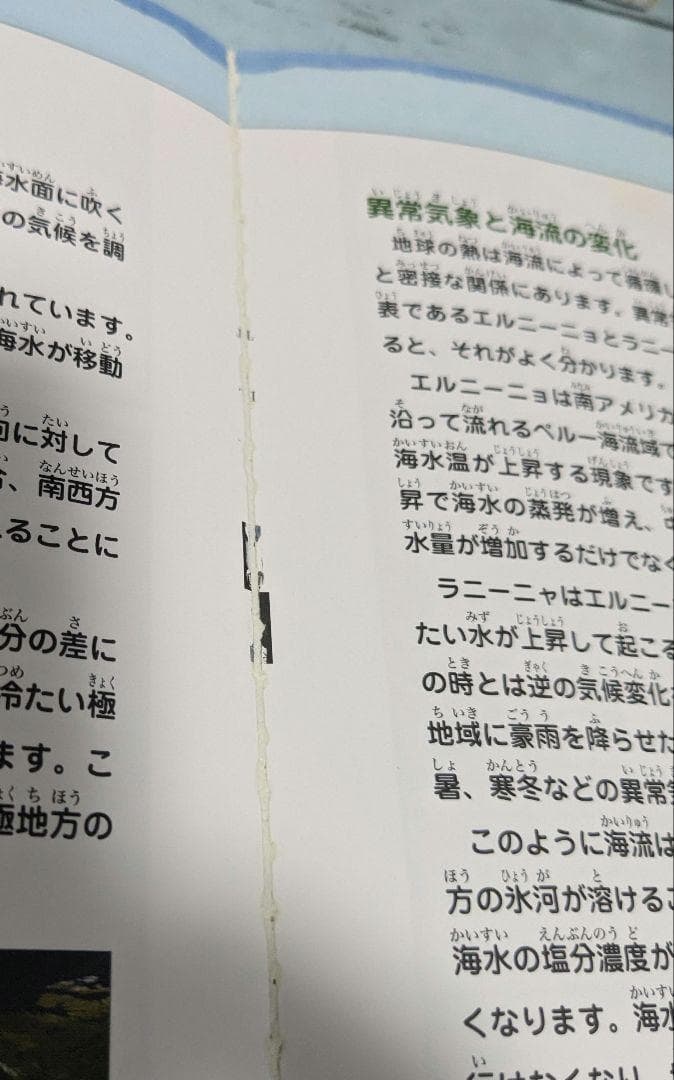 水面に吹く
の気候を調
れています。
海水が移動
に対して
、南西方
ることに
分の差に
冷たい極
ます。こ
極地方の
異常気象と海流の変化
地球の熱は海流によって循環し
と密接な関係にあります。異常
表であるエルニーニョとラニー
ると、それがよく分かります。
エルニーニョは南アメリカ
沿って流れるペルー海流域で
海水温が上昇する現象です
昇で海水の蒸発が増え、
水量が増加するだけでなく
ラニーニャはエルニー
たい水が上昇して起こる
の時とは逆の気候変化
地域に豪雨を降らせた
暑、寒冬などの異常気
このように海流は
方の氷河が溶けるこ
海水の塩分濃度が
くなります。海水